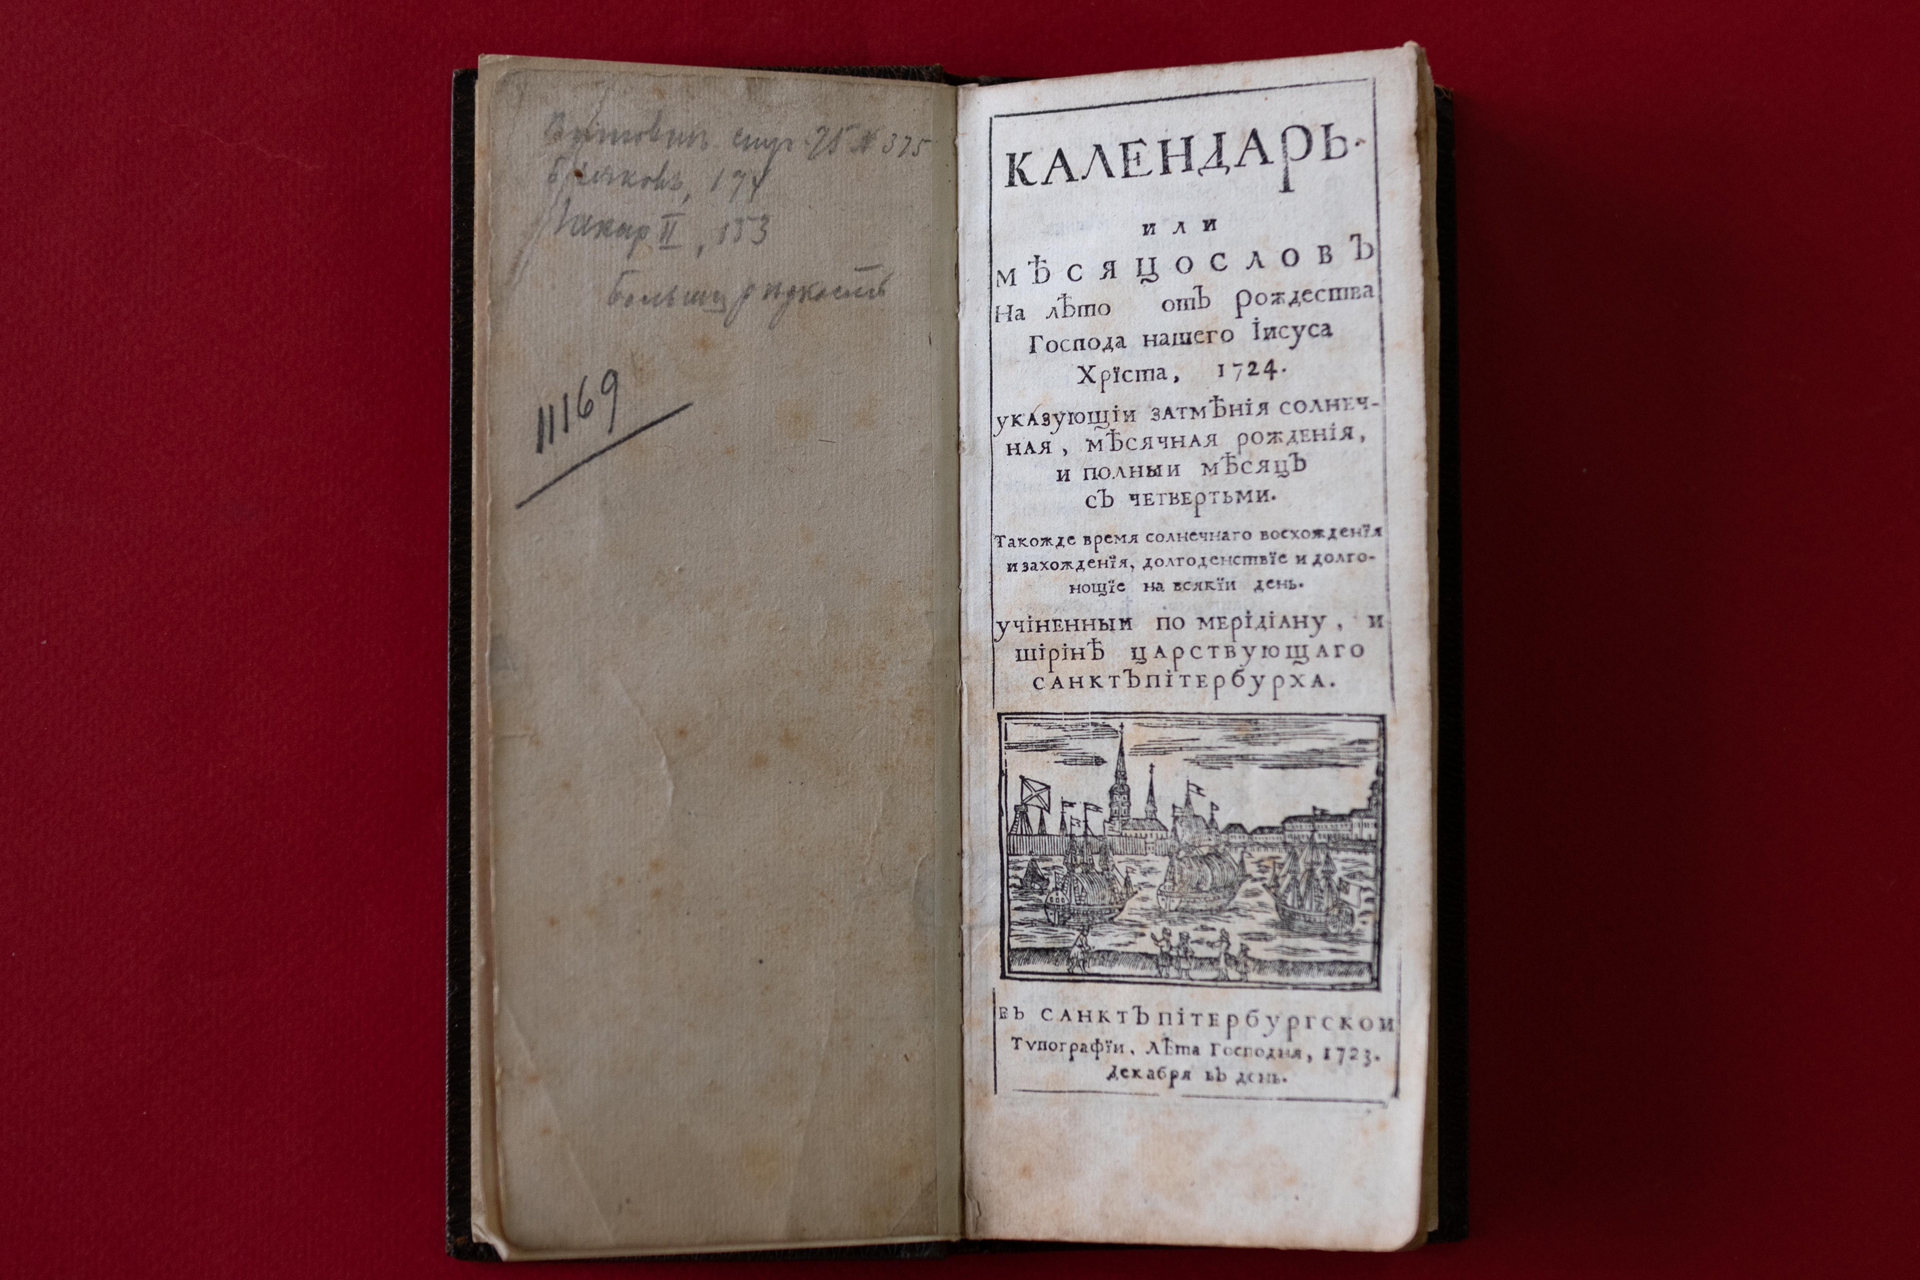 стр. 75 № 375
II, 153
большая редкость
11169
КАЛЕНДАРЬ.
или
мѢсяцословЪ
На лѢто отЪ рождества
Господа нашего Іисуса
Хрїста, 1724.
указующїи затмѢнїя солнеч-
ная, мѢсячная рожденїя,
и полныи мѢсяцЪ
сЪ четвертьми.
Такожде время солнечнаго восхожденїя
и захожденїя, долгоденствїе и долго-
нощїе на всякїи день.
учіненныи по мерідіану, и
шірінѢ царствующаго
санктЪпітербурха.
вЪ санктЪпітербургскои
Тѵпографїи, лѢта Господня, 1723.
Декабря вЪ день.